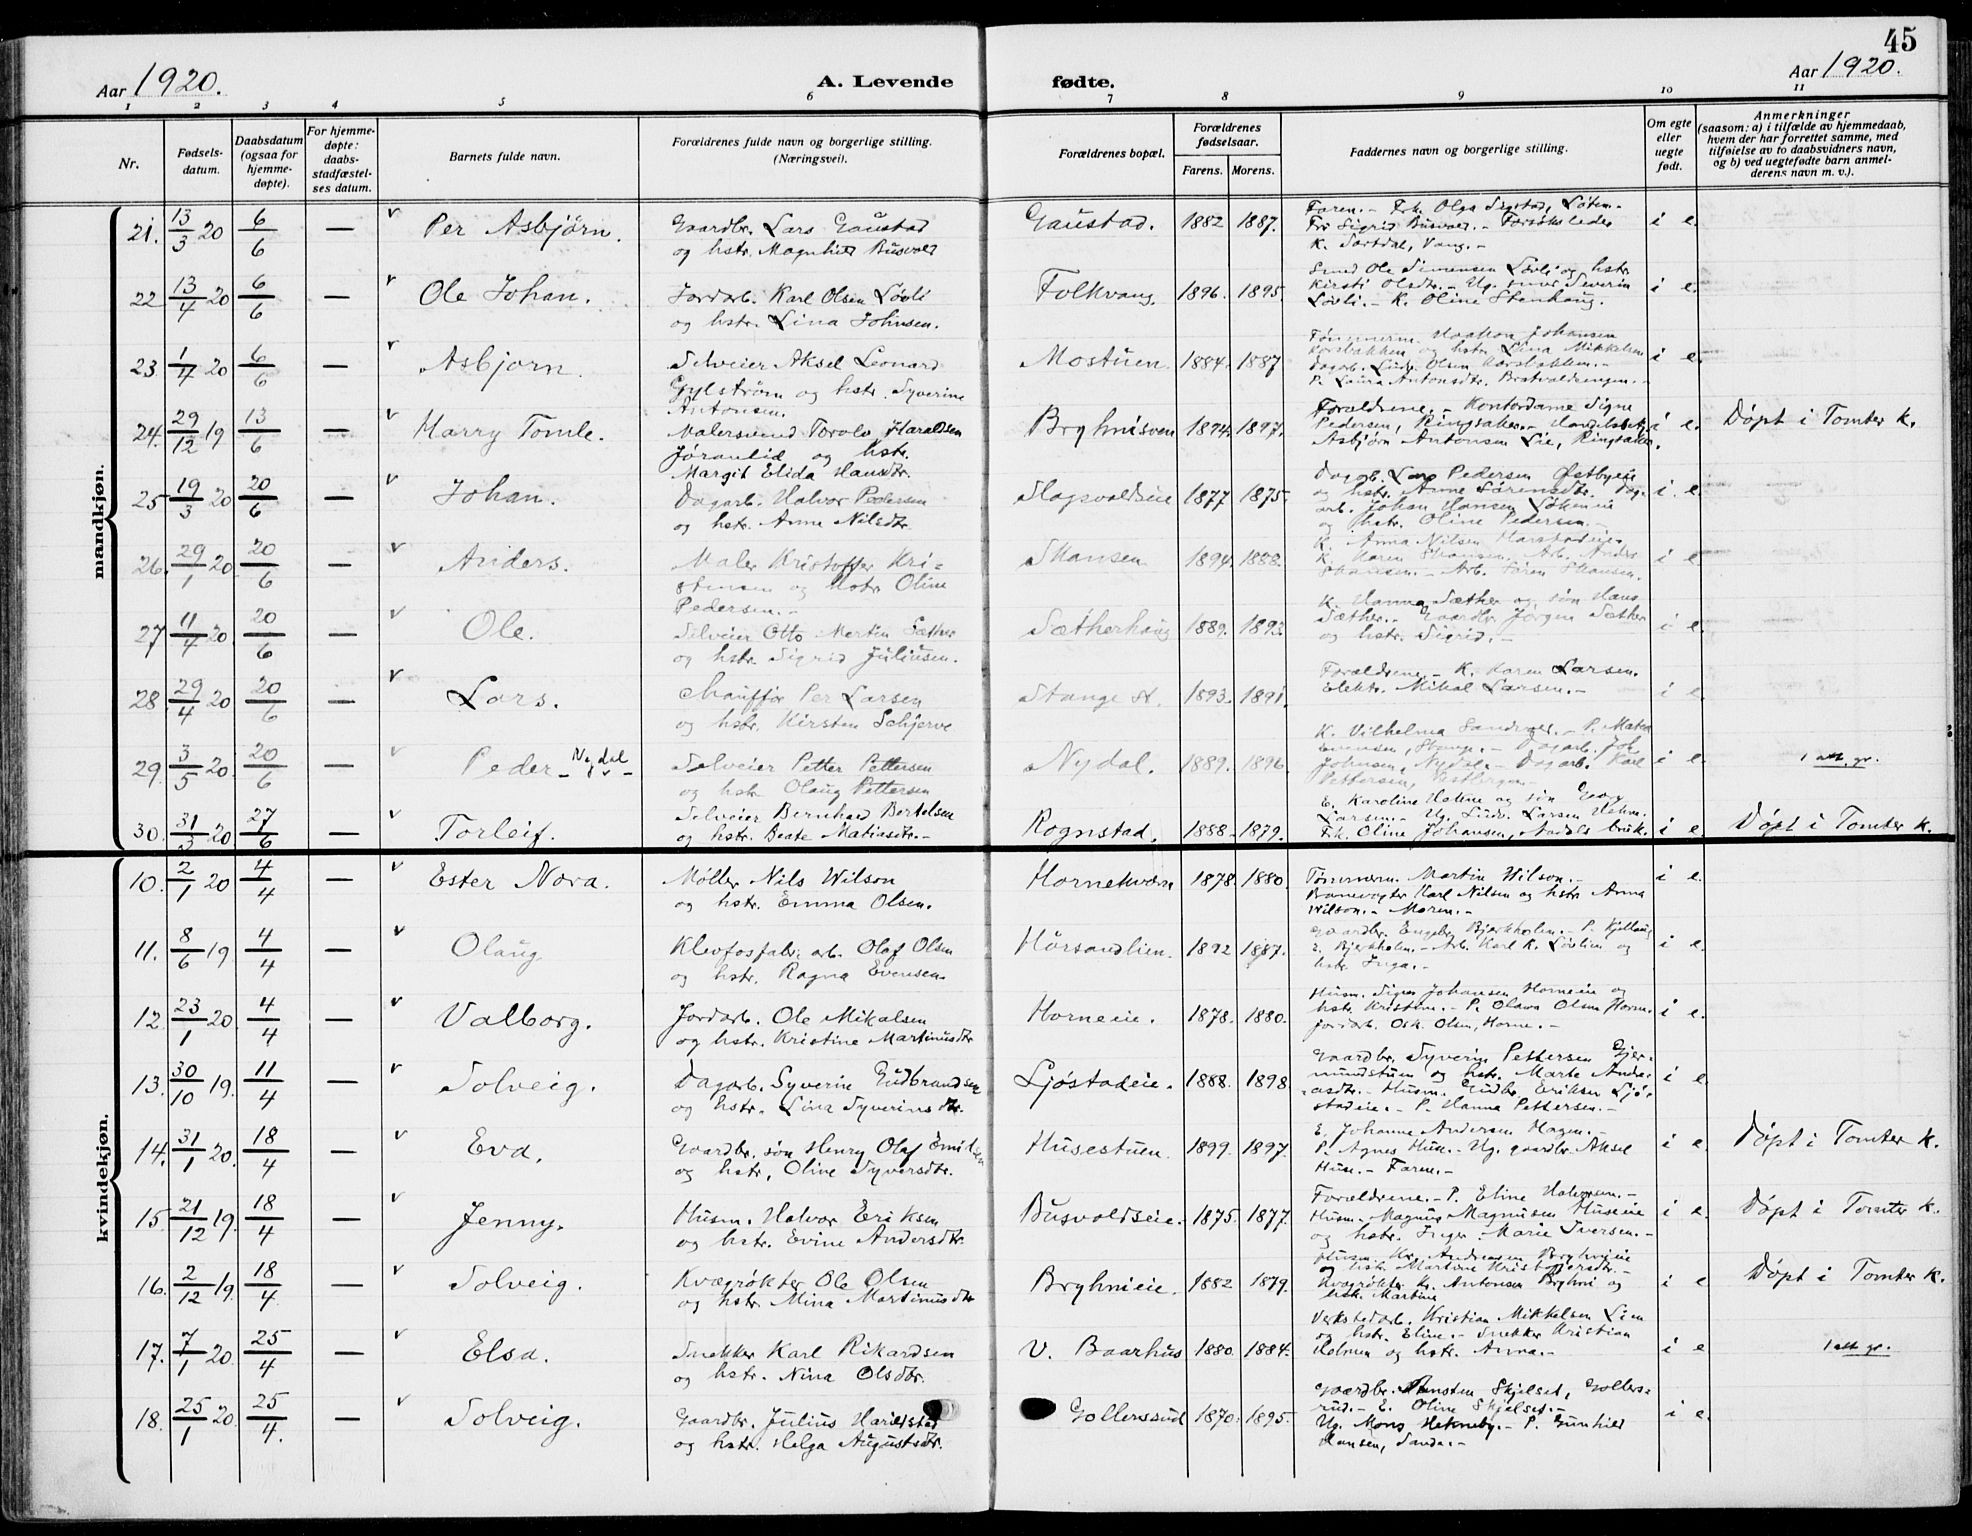 45
Aar 1920. A. Levende fødte. Aar 1920.
1 2 3 4 5 6 7 8 9 10 11
Nr.
Fødsels-
datum.
Daabsdatum
(ogsaa for
hjemme-
døpte).
For hjemme-
døpte:
daabs-
stadfæstel-
ses datum.
Barnets fulde navn.
Forældrenes fulde navn og borgerlige stilling.
(Næringsvei).
Forældrenes bopæl.
Forældrenes
fødselsaar.
Farens. Morens.
Faddernes navn og borgerlige stilling.
Om egte
eller
uegte
født.
Anmerkninger
(saasom: a) i tilfælde av hjemmedaab,
hvem der har forrettet samme, med
tilføielse av to daabsvidners navn,
og b) ved uegtefødte barn anmel-
derens navn m. v.).
mandkjøn.
21. 13/3 20 6/6 — Per Asbjørn. Gaardbr. Lars Gaustad
og hstr. Magnhild Busvold
Gaustad. 1882 1887. Faren. - Frk. Olga Sigstad, Løten.-
Fru Sigrid Busvold. - Forsøksleder
K. Sortdal, Vang. -
i e.
22 13/4 20 6/6 — Ole Johan. Jordarb. Karl Olsen Løvli
og hstr. Lina Johnsen.
Folkvang. 1896. 1895. Smed Ole Simensen Løvli og hstr.
Kirsti Olsdtr. - Ug. smed Severin
Løvli. - K. Oline Stenhaug.
i e.
23 1/4 20 6/6 — Asbjørn. Selveier Aksel Leonard
Gylstrøm og hstr. Syverine
Antonsen.
Mostuen. 1884. 1887 Tømmerm. Haakon Johansen
Korsbakken og hstr. Lina Mikkelsen
Dagarb. Ludv. Olsen Korsbakken. -
P. Laura Antonsdtr.
i e.
24. 29/12 19 13/6 — Harry Tomle. Malersvend Torolv Haraldsen
Jøranlid og hstr.
Margit Elida Hansdtr.
Bryhnisven 1894. 1897. Forældrene. - Kontordame Signe
Pedersen, Ringsaker. -
Asbjørn Antonsen Lie, Ringsaker.
i e. Døpt i Tomter k.
25 19/3 20 20/6 — Johan. Dagarb. Halvor Pedersen
og hstr. Anne Nilsdtr.
Slagsvoldseie 1877 1875. Dagarb. Lars Pedersen Østbyeie
og hstr. Anne Sørensdtr. Dag-
arb. Johan Hansen Løkeneie
og hstr. Oline Pedersen. -
i e.
26. 29/1 20 20/6 — Anders. Maler Kristoffer Kri-
stensen og hstr Oline
Pedersen. -
Skansen 1894. 1888. K. Anna Nilsen Harstadeie.
K. Karen Skansen. Arb. Anders
Skansen. - Arb. Søren Skansen.
i e.
27 11/4 20. 20/6 — Ole. Selveier Otto Martin Sæther
og hstr. Sigrid Juliusen.
Sætherhaug 1889. 1893. K. Hanna Sæther og søn Hans
Sæther. - Gaardbr. Jørgen Sæther
og hstr. Sigrid. -
i e.
28 29/4 20 20/6 — Lars. Chauffør Per Larsen
og hstr. Kirsten Schjerve
Stange st. 1893. 1891. Forældrene. - K. Karen Larsen.
Elektr. Mikal Larsen. -
i e.
29. 3/5 20. 20/6 — Peder - Nydal - Selveier Petter Pettersen
og hstr Olaug Pettersen
Nydal. 1889. 1896. K. Vilhelma - P. Mathea
Evensen, Stange. - Dagarb. Joh.
Johnsen, Nydal. - Dagarb. Karl
Pettersen,
i e. 1 att. gr.
30. 31/3 20 27/6 — Torleif. Selveier Bernhard Bertelsen
og hstr. Beate Matiasdtr. -
Rognstad. 1888. 1879. E. Karoline og søn Georg
Larsen. - Ug. Ludv. Larsen
Frk. Oline Johansen, bruk.
i e. Døpt i Tomter k.
kvindekjøn.
10. 2/1 20 4/4 — Ester Nora. Møller Nils Wilson
og hstr. Emma Olsen.
Hornekværn 1878. 1880. Tømmerm. Martin Wilson. -
Banevogter Karl Nilsen og hstr Anna
Wilson. - Moren. -
i e.
11. 8/6 19 4/4 — Olaug Klevfosfabr. arb. Olaf Olsen
og hstr. Ragna Evensen.
Hørsandlien. 1892 1887. Gaardbr. Engebr. Bjerkholen. - P. Kjellaug
E. Bjerkholen. - Arb. Karl K. Løvlien og
hstr. Inga. -
i e.
12. 23/1 20. 4/4 — Valborg. Jordarb. Ole Mikalsen
og hstr. Kristine Martinusdtr
Horneie. 1878. 1880. Husm. Sigv. Johansen Horneie og
hstr. Kristine. - P. Olava Olsen Horne.
Jordarb. Osk. Olsen, Horne. -
i e.
13. 30/10 19. 11/4 — Solveig. Dagarb. Syverin Gudbrandsen
og hstr. Lina Syverinsdtr.
Ljøstadeie. 1888. 1898. Gaardbr. Syverin Pettersen Gjer-
mundstuen og hstr. Marte Andre-
asdtr. - Husm. Gudbr. Eriksen Ljø-
stadeie. - P. Hanna Pettersen. -
i e.
14. 31/1 20. 18/4 — Eva. Gaardbr. søn Henry Olaf Emilsen
og hstr. Oline Syversdtr.
Husestuen. 1899. 1897. E. Johanne Andersen Hagen. -
P. Agnes Huse. - Ug. gaardbr. Aksel
Huse. - Faren. -
i e. Døpt i Tomter k.
15. 21/12 19. 18/4 — Jenny. Husm. Halvor Eriksen
og hstr. Evine Andersdtr.
Busvoldseie. 1875. 1877. Forældrene. - P. Eline Halvorsen. -
Husm. Magnus Magnussen Huseeie
og hstr. Inger Marie Iversen. -
i e. Døpt i Tomter k.
16. 2/12 19. 18/4 — Solveig. Kvægrøkter Ole Olsen
og hstr. Mina Martinusdtr
Bryhnieie. 1882 1879. Husm. Kr. Andreasen Bryhnieie
og hstr. Martine
Kvægrøkter Kr. Antonsen Bryhni og
hstr. Martine
i e Døpt i Tomter k.
17. 7/1 20. 25/4 — Elsa. Snekker Karl Rikardsen
og hstr. Nina Olsdtr.
V. Baarhus 1880. 1884. Verkstedarb. Kristian Mikkelsen Lien
og hstr. Eline. - Snekker Kristian
Holmen og hstr. Anna. -
i e 1 att. gr.
18. 25/1 20. 25/4. — Solveig. Gaardbr. Julius Harildstad
og hstr. Helga Augustsdtr.
Gollersrud 1870. 1895. Gaardbr. Skjelset, Gollers-
rud. - E. Oline Skjelset. -
Ug. Mons Hekneby. - P. Gunhild
Hansen, Sanda. -
i e.